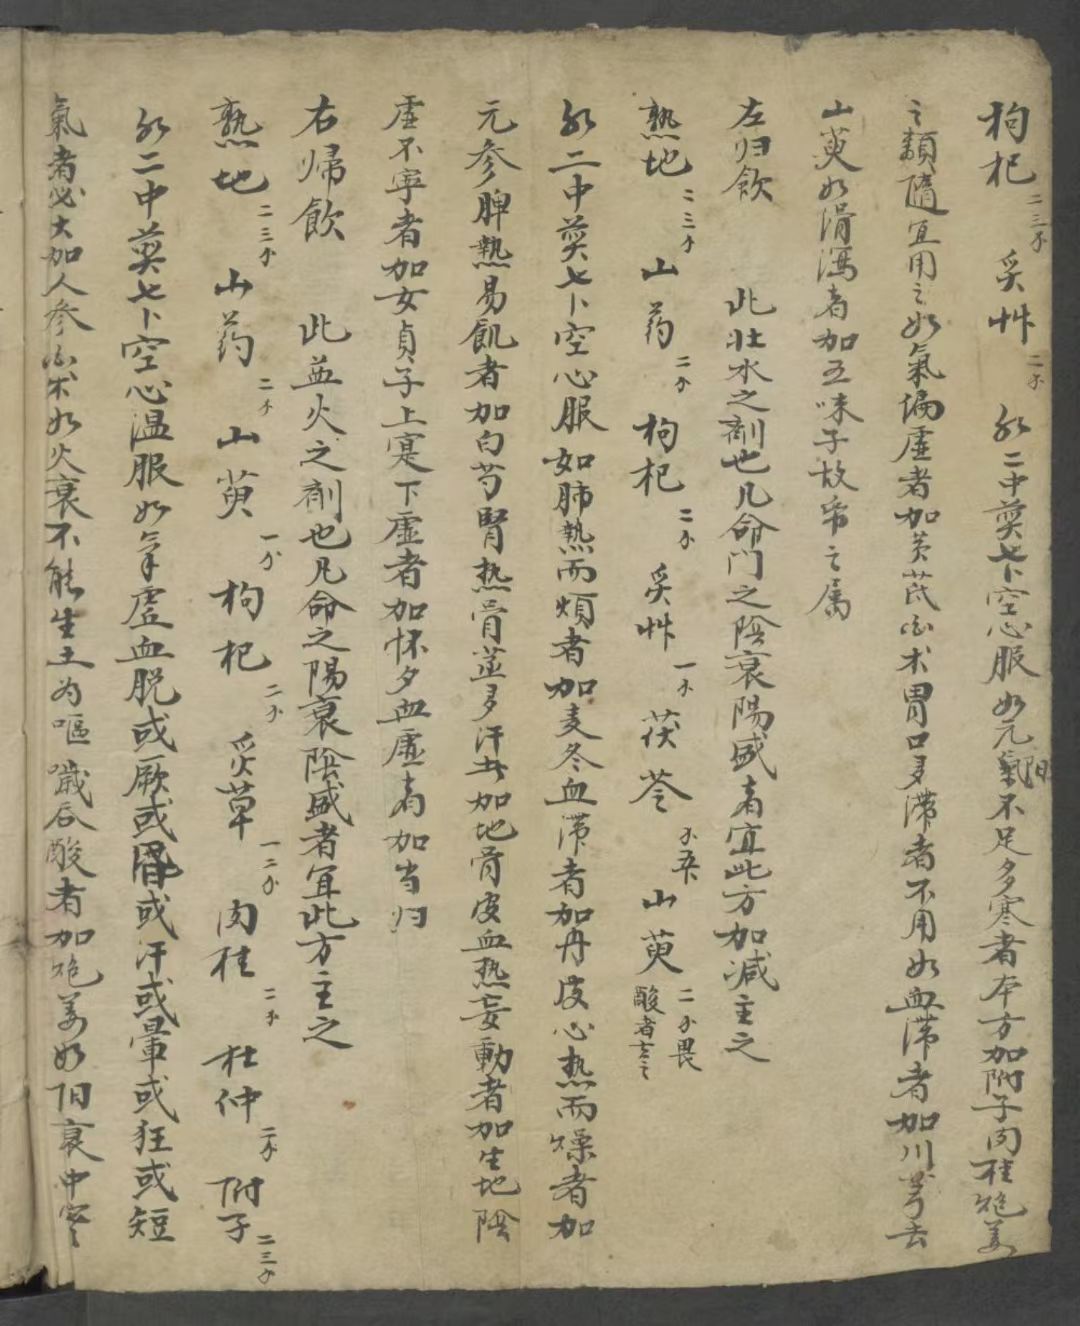 枸杞二三钅 炙艸二钅 水二中煎七卜空心服如元陽氣不足多寒者本方加附子肉桂炮姜
之類隨宜用之如氣偏虛者加黃芪白术胃口多滯者不用如血滯者加川芎去
山萸如滑瀉者加五味子故帋之属
左归飲 此壮水之剤也凡命门之陰衰陽盛者宜此方加减主之
熟地二三钅 山药二钅 枸杞二钅 炙艸一钅 茯苓钅半 山萸二钅畏酸者去之
水二中煎七卜空心服如肺熱而煩者加麦冬血滞者加丹皮心热而燥者加
元参脾熱易飢者加白芍腎热骨蒸多汗者加地骨皮血热妄動者加生地陰
虚不寕者加女貞子上寔下虚者加怀夕血虚者加当归
右帰飲 此益火之剤也凡命之陽衰陰盛者宜此方主之
熟地二三钅 山药二钅 山萸一钅 枸杞二钅 炙草一二钅 肉桂二钅 杜仲二钅 附子二三钅
水二中煎七卜空心温服如氣虚血脱或厥或昏或汗或暈或狂或短
氣者必大加人参白术如火衰不能生土为嘔噦吞酸者加炮姜如阳衰中寒